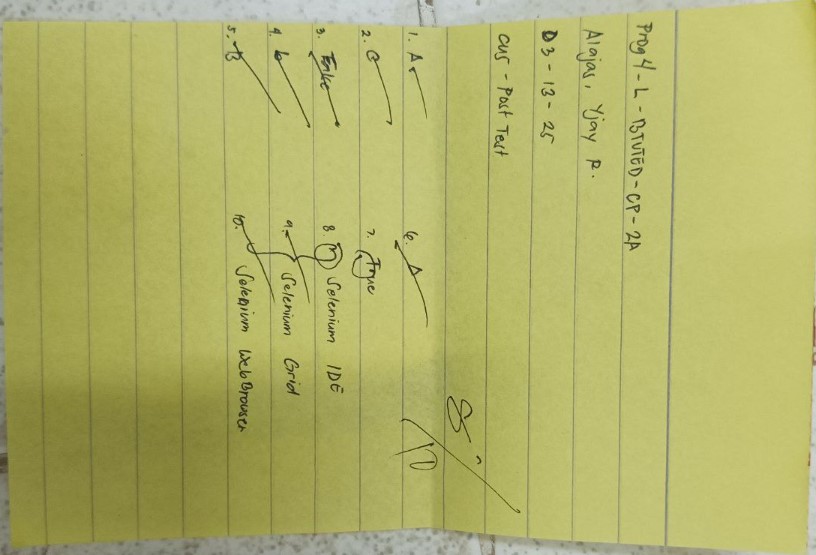 Prog 4 - L - BTVTED - CP - 2A
Alajas, Yjay R.
03 - 13 - 25
CU5 - Post Test
8/10
1. A
2. C
3. False
4. b
5. B
6. A
7. True
8. Selenium IDE
9. Selenium Grid
10. Selenium WebBrowser